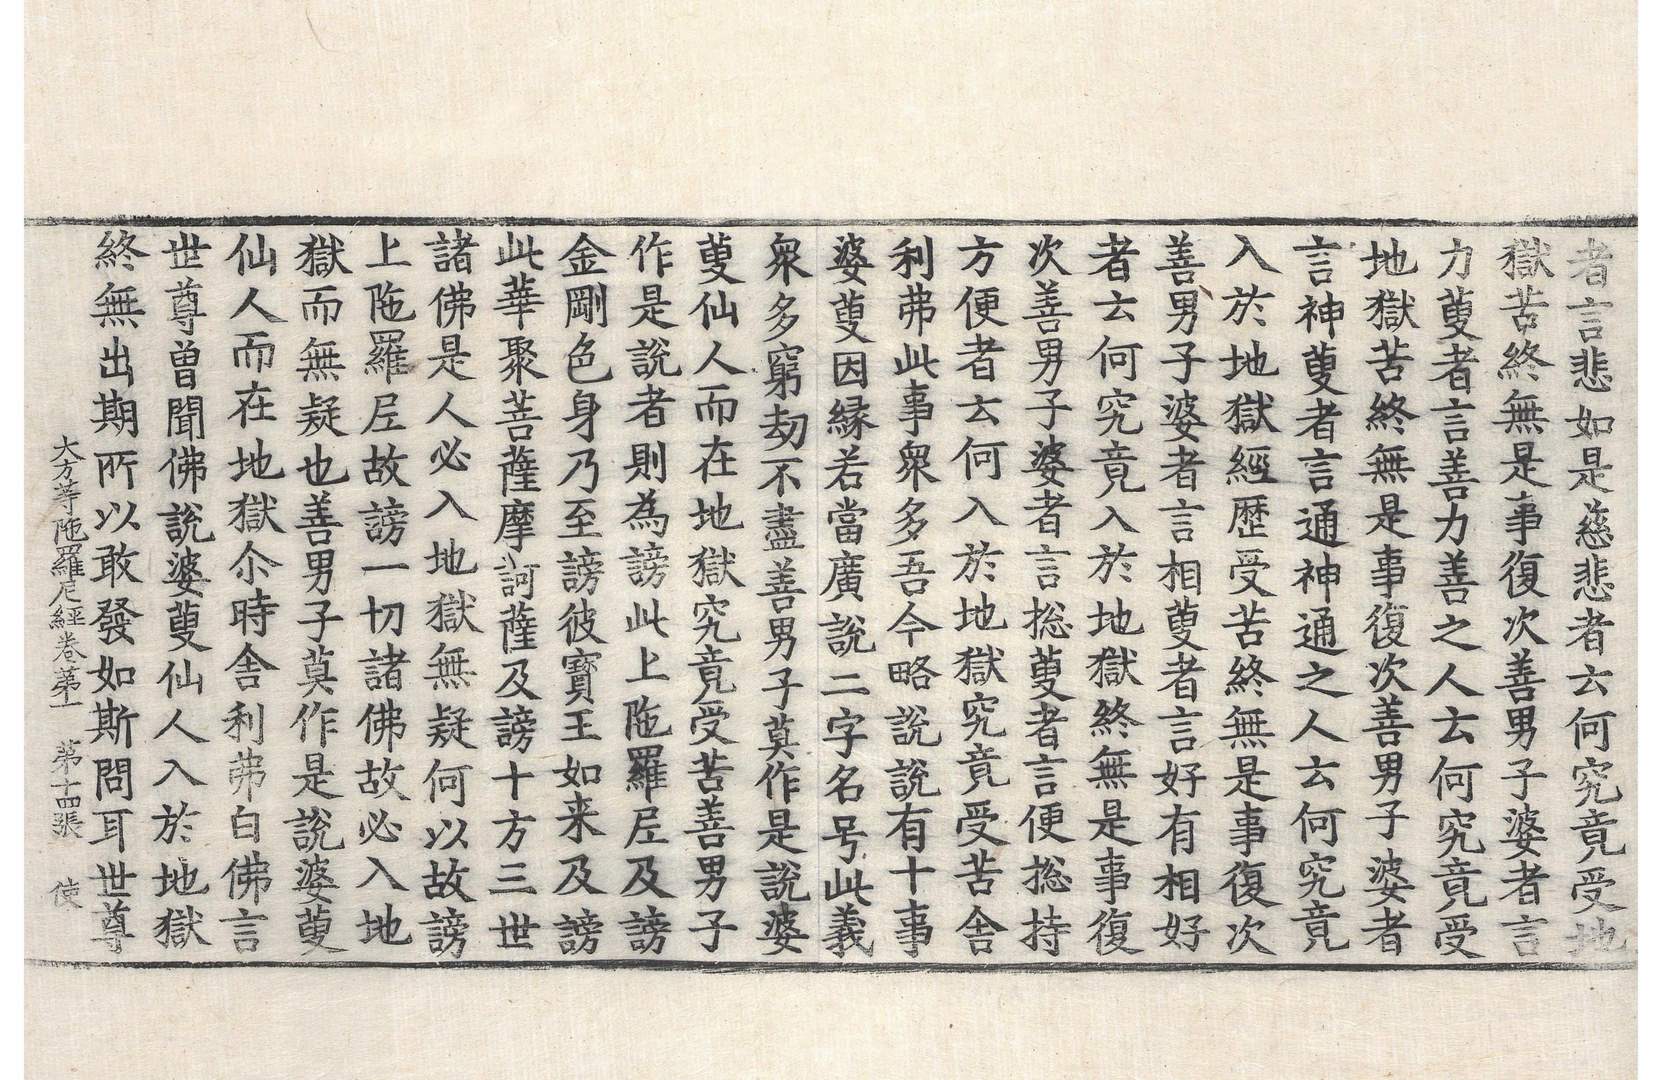 者言悲如是慈悲者云何究竟受地
獄苦終無是事復次善男子婆者言
力藪者言善力善之人云何究竟受
地獄苦終無是事復次善男子婆者
言神藪者言通神通之人云何究竟
入於地獄經歷受苦終無是事復次
善男子婆者言相藪者言好有相好
者云何究竟入於地獄終無是事復
次善男子婆者言揔藪者言便揔持
方便者云何入於地獄究竟受苦舍
利弗此事衆多吾今略說說有十事
婆藪因緣若當廣說二字名号此義
衆多窮劫不盡善男子莫作是說婆
藪仙人而在地獄究竟受苦善男子
作是說者則為謗此上陁羅尼及謗
金剛色身乃至謗彼寶王如来及謗
此華聚菩薩摩訶薩及謗十方三世
諸佛是人必入地獄無疑何以故謗
上陁羅尼故謗一切諸佛故必入地
獄而無疑也善男子莫作是說婆藪
仙人而在地獄尒時舍利弗白佛言
世尊曾聞佛說婆藪仙人入於地獄
終無出期所以敢發如斯問耳世尊
大方等陁羅尼經卷第一 第十四張 使